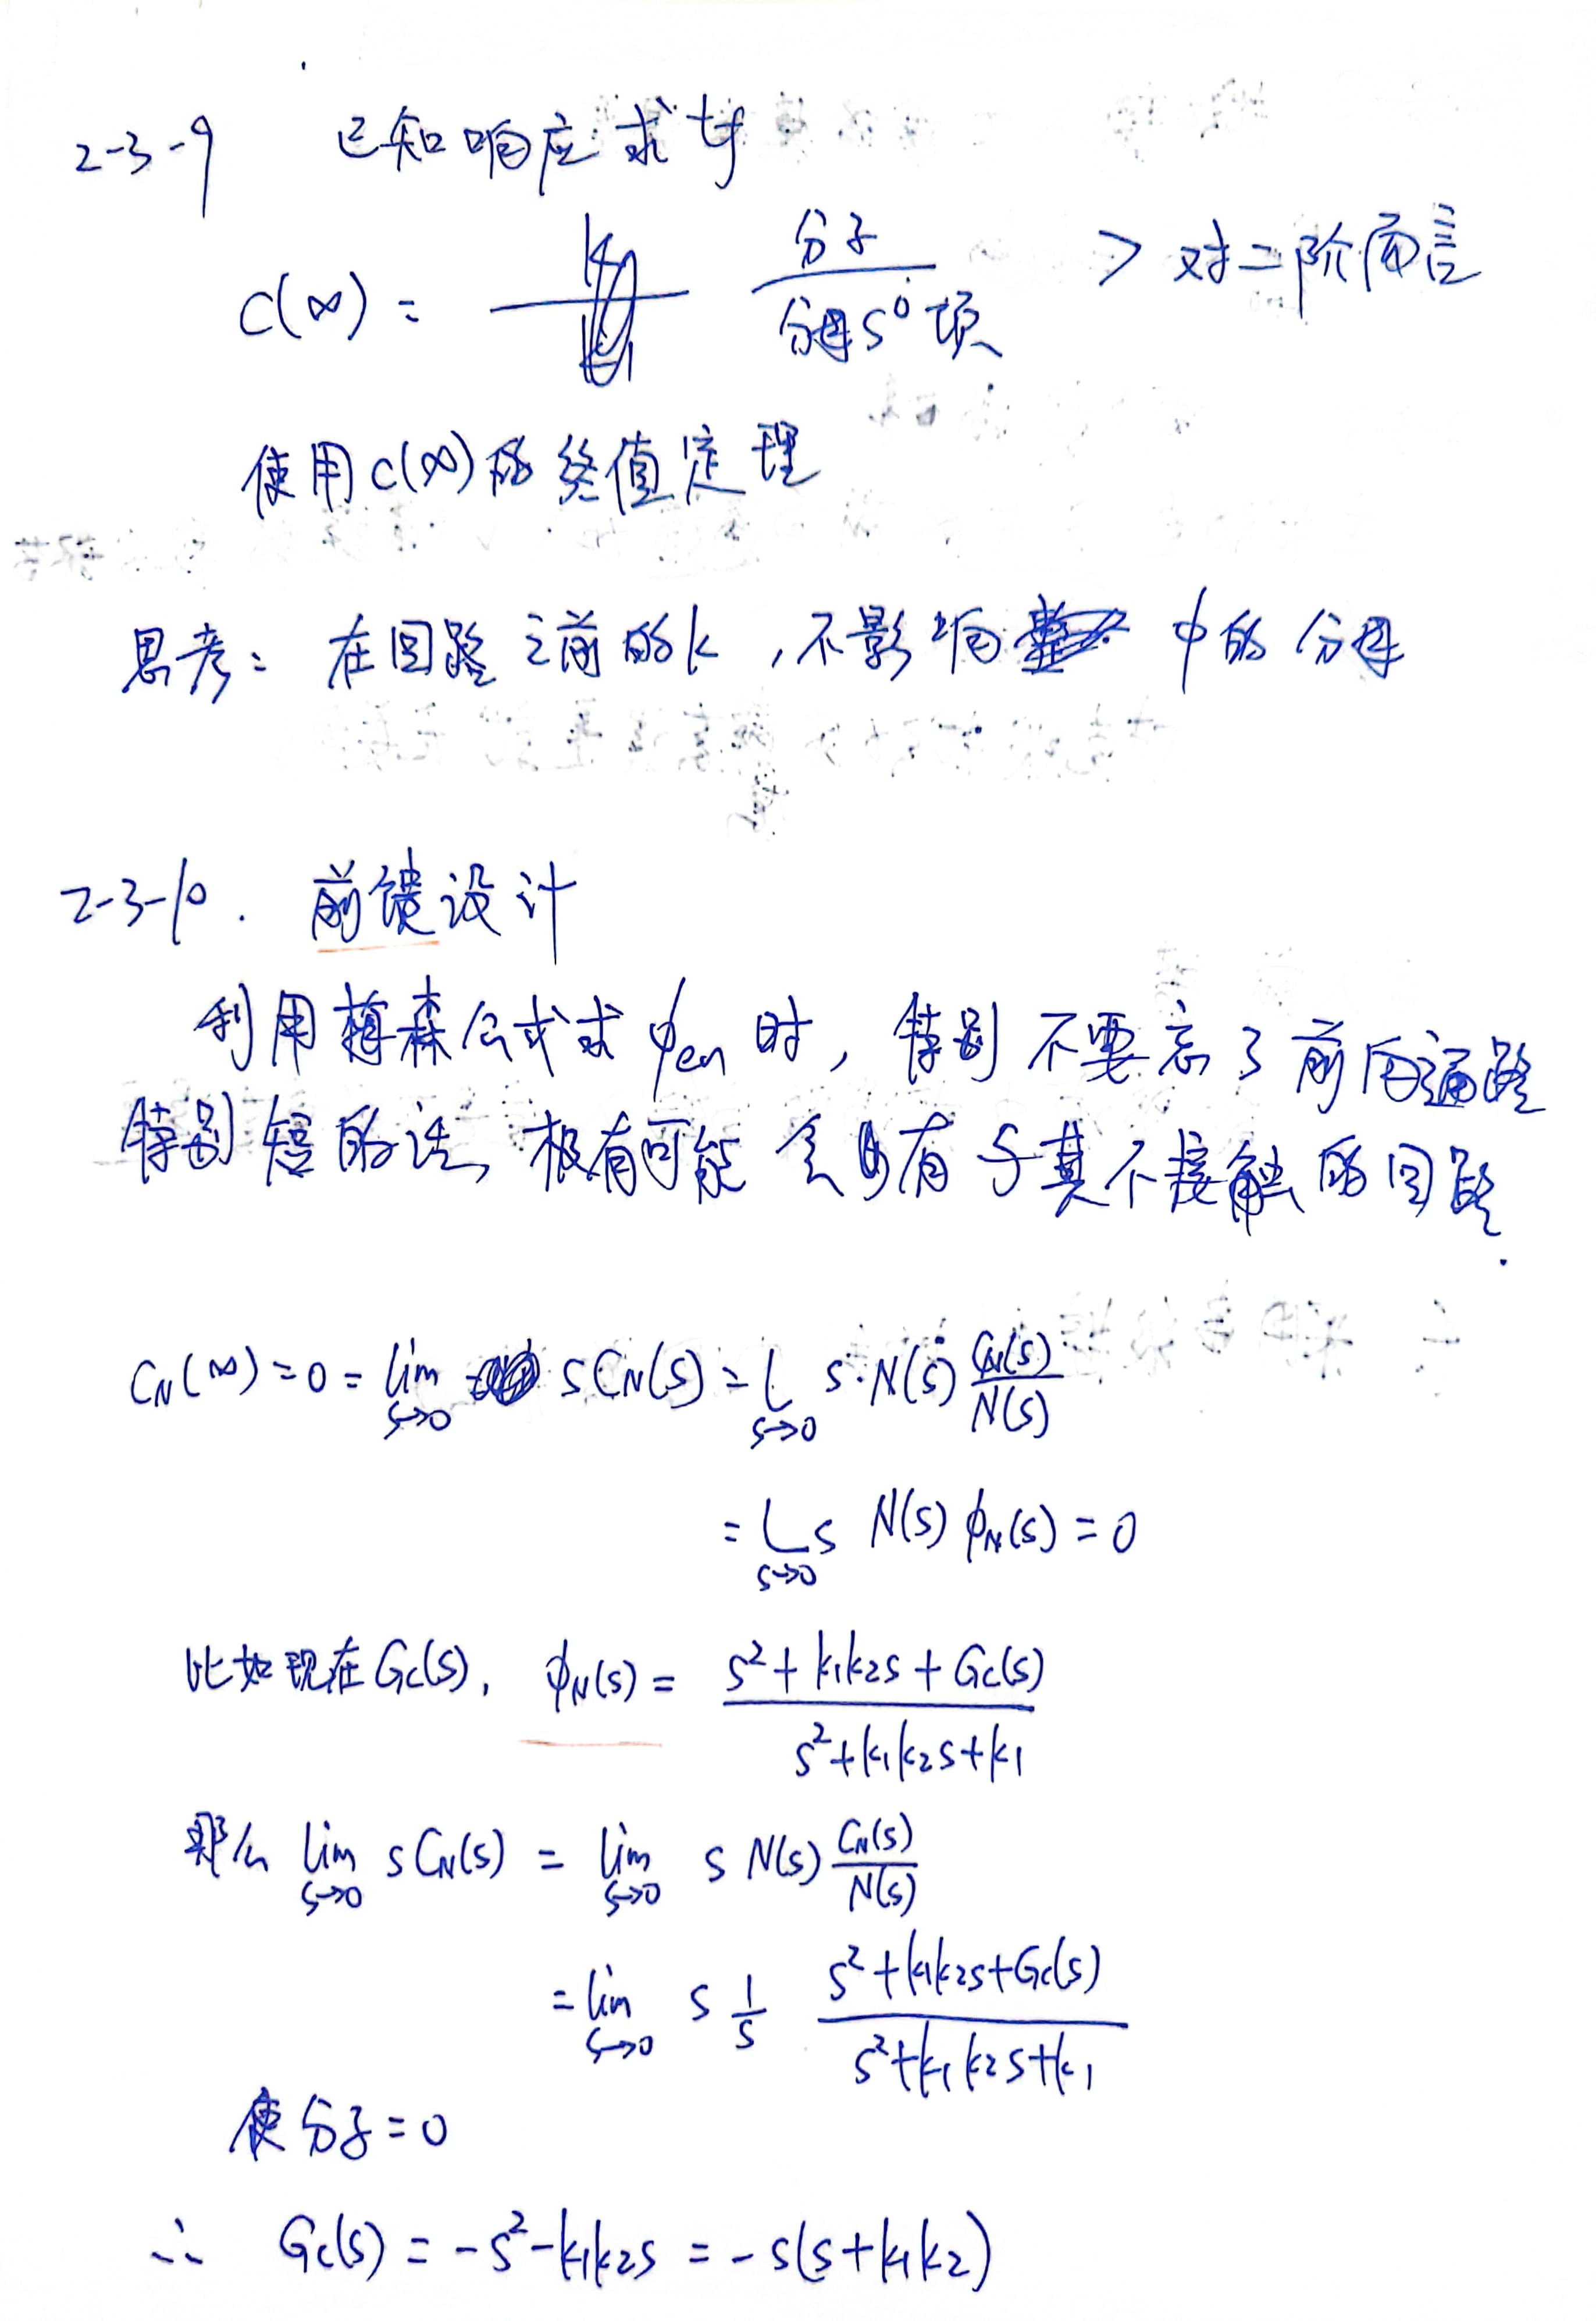 2-3-9 已知响应求tf
C(∞) = 分子/分母s⁰项 > 对二阶而言
使用C(∞)的终值定理
思考：在回路之前的k，不影响 φ的分母
2-3-10. 前馈设计
利用梅森公式求φen时，特别不要忘了前向通路
特别短的话，极有可能会有与其不接触的回路.
C_N(∞)=0=lim_{s→0} sC_N(s)=L_{s→0} s·N(s) C_N(s)/N(s)
=L_{s→0} s N(s) φ_N(s)=0
比如现在Gc(s)，φ_N(s)= (s²+k₁k₂s+Gc(s))/(s²+k₁k₂s+k₁)
那么 lim_{s→0} sC_N(s) = lim_{s→0} s N(s) C_N(s)/N(s)
=lim_{s→0} s 1/s (s²+k₁k₂s+Gc(s))/(s²+k₁k₂s+k₁)
使分子=0
∴ Gc(s) = -s²-k₁k₂s = -s(s+k₁k₂)